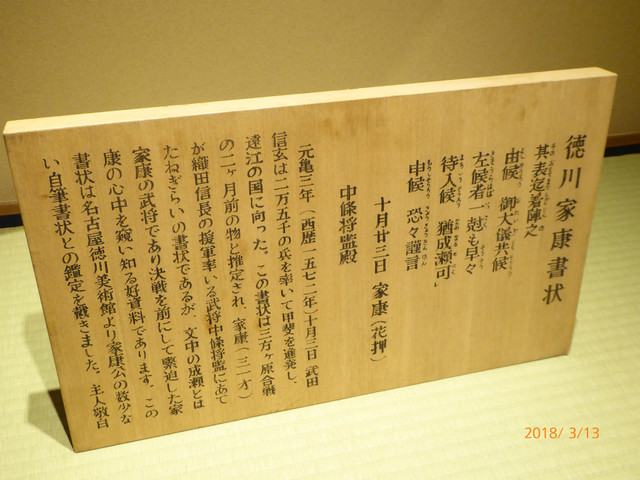 徳川家康書状
其表迄着陣之
由候 御大儀共候
左候者、尅も早々
待入候 猶成瀬可」
申候 恐々謹言
十月廿三日 家康(花押)
中條将監殿
元亀三年(西歴一五七二年)十月三日 武田
信玄は二万五千の兵を率いて甲斐を進発し、
遠江の国に向った。この書状は三方ヶ原合戦
の二ヶ月前の物と推定され、家康(三一才)
が織田信長の援軍率いる武将中條将監にあて
たねぎらいの書状であるが、文中の成瀬とは
家康の武将であり決戦を前にして緊迫した家
康の心中を窺い知る好資料であります。この
書状は名古屋徳川美術館より家康公の数少な
い自筆書状との鑑定を戴きました。主人敬白
2018/ 3/13